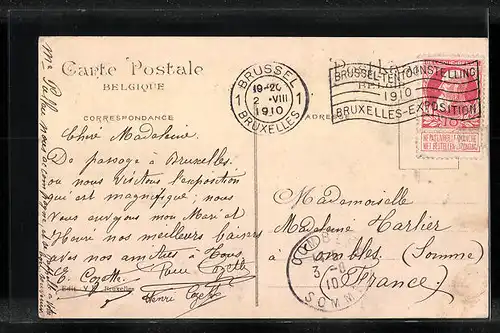 Carte Postale
BELGIQUE
CORRESPONDANCE
Chère Madeleine
De passage à Bruxelles
où nous visitons l'exposition
qui est magnifique, nous
Vous envoyons mon Mari et
Henri nos meilleurs baisers
avec nos amitiés à Tous
E. Cozette
Pierre Cozette
Henri Cozette
Edit. V. Bruxelles
BRUSSEL
19-20
1 2 -VIII 1
1910
BRUXELLES
BRUSSEL-TENTOONSTELLING
1910
BRUXELLES-EXPOSITION
NE PAS LIVRER LE DIMANCHE
NIET BESTELLEN OP ZONDAG
Mademoiselle
Madeleine Harlier
à Combles (Somme)
(France)
COMBLES
3 -8
10
SOMME